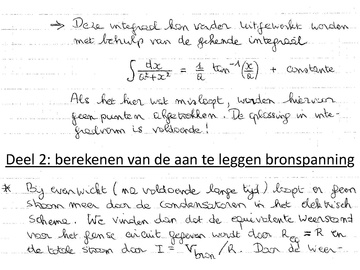 → Deze integraal kan verder uitgewerkt worden
met behulp van de gekende integraal
∫ dx/(a²+x²) = 1/a tan⁻¹(x/a) + constante
Als het hier wat misloopt, worden hiervoor
geen punten afgetrokken. De oplossing in inte-
graalvorm is voldoende!
Deel 2: berekenen van de aan te leggen bronspanning
* Bij evenwicht (na voldoende lange tijd) loopt er geen
stroom meer door de condensatoren in het elektrisch
schema. We vinden dan dat de equivalente weerstand
voor het ganse circuit gegeven wordt door R_eq = R en
de totale stroom door I = V_bron/R. Door de weer-